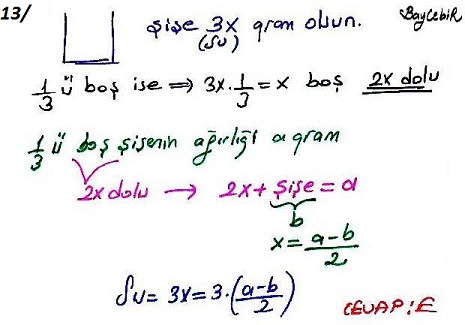 13/ şişe 3x gram olsun. BayCebir
(su)
1/3 ü boş ise ⇒ 3x·1/3 = x boş 2x dolu
1/3 ü boş şişenin ağırlığı a gram
2x dolu → 2x + şişe = a
b
x = a-b/2
Su = 3x = 3·(a-b/2)
CEVAP: E